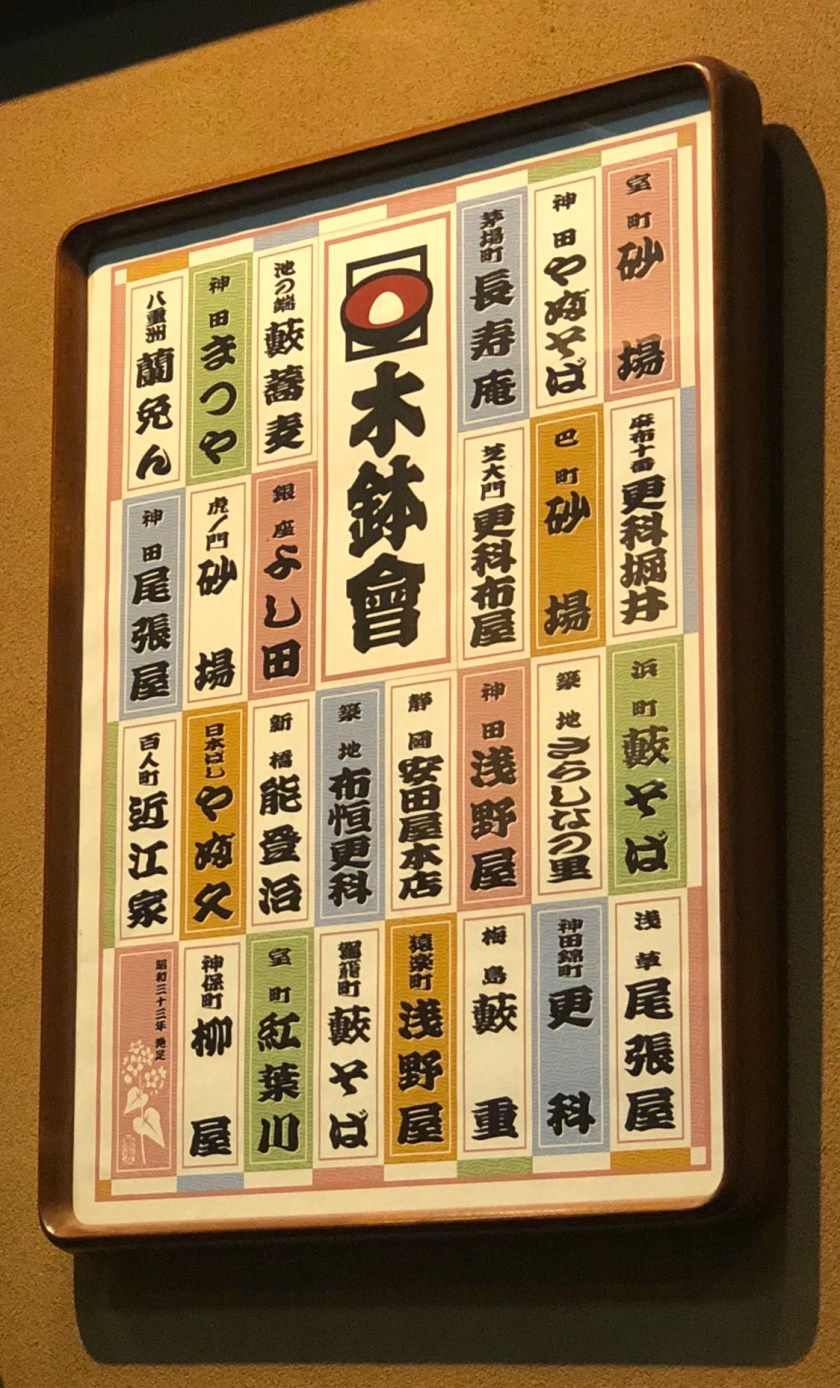 室町 砂場
神田 やぶそば
茅場町 長寿庵
木鉢會
池の端 藪蕎麦
神田 まつや
八重洲 蘭免ん
麻布十番 更科堀井
巴町 砂場
芝大門 更科布屋
銀座 よし田
虎ノ門 砂場
神田 尾張屋
浜町 藪そば
築地 さらしなの里
神田 浅野屋
静岡 安田屋本店
築地 布恒更科
新橋 能登治
日本ばし やぶ久
百人町 近江家
浅草 尾張屋
神田錦町 更科
梅島 藪重
猿楽町 浅野屋
鴛籠町 藪そば
室町 紅葉川
神保町 柳屋
昭和三十三年 発足